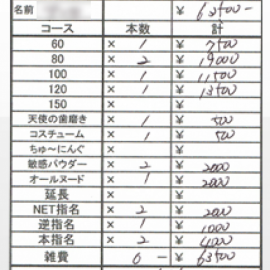 名前 ¥ 63500-
コース 本数 計
60 × 1 ¥ 7500
80 × 2 ¥ 19000
100 × 1 ¥ 11500
120 × 1 ¥ 13500
150 × ¥
天使の歯磨き × 1 ¥ 500
コスチューム × 1 ¥ 500
ちゅ〜にんぐ × ¥
敏感パウダー × 2 ¥ 2000
オールヌード × 1 ¥ 2000
延長 × ¥
NET指名 × 2 ¥ 2000
逆指名 × 1 ¥ 1000
本指名 × 2 ¥ 4000
雑費 6 - ¥ 63500